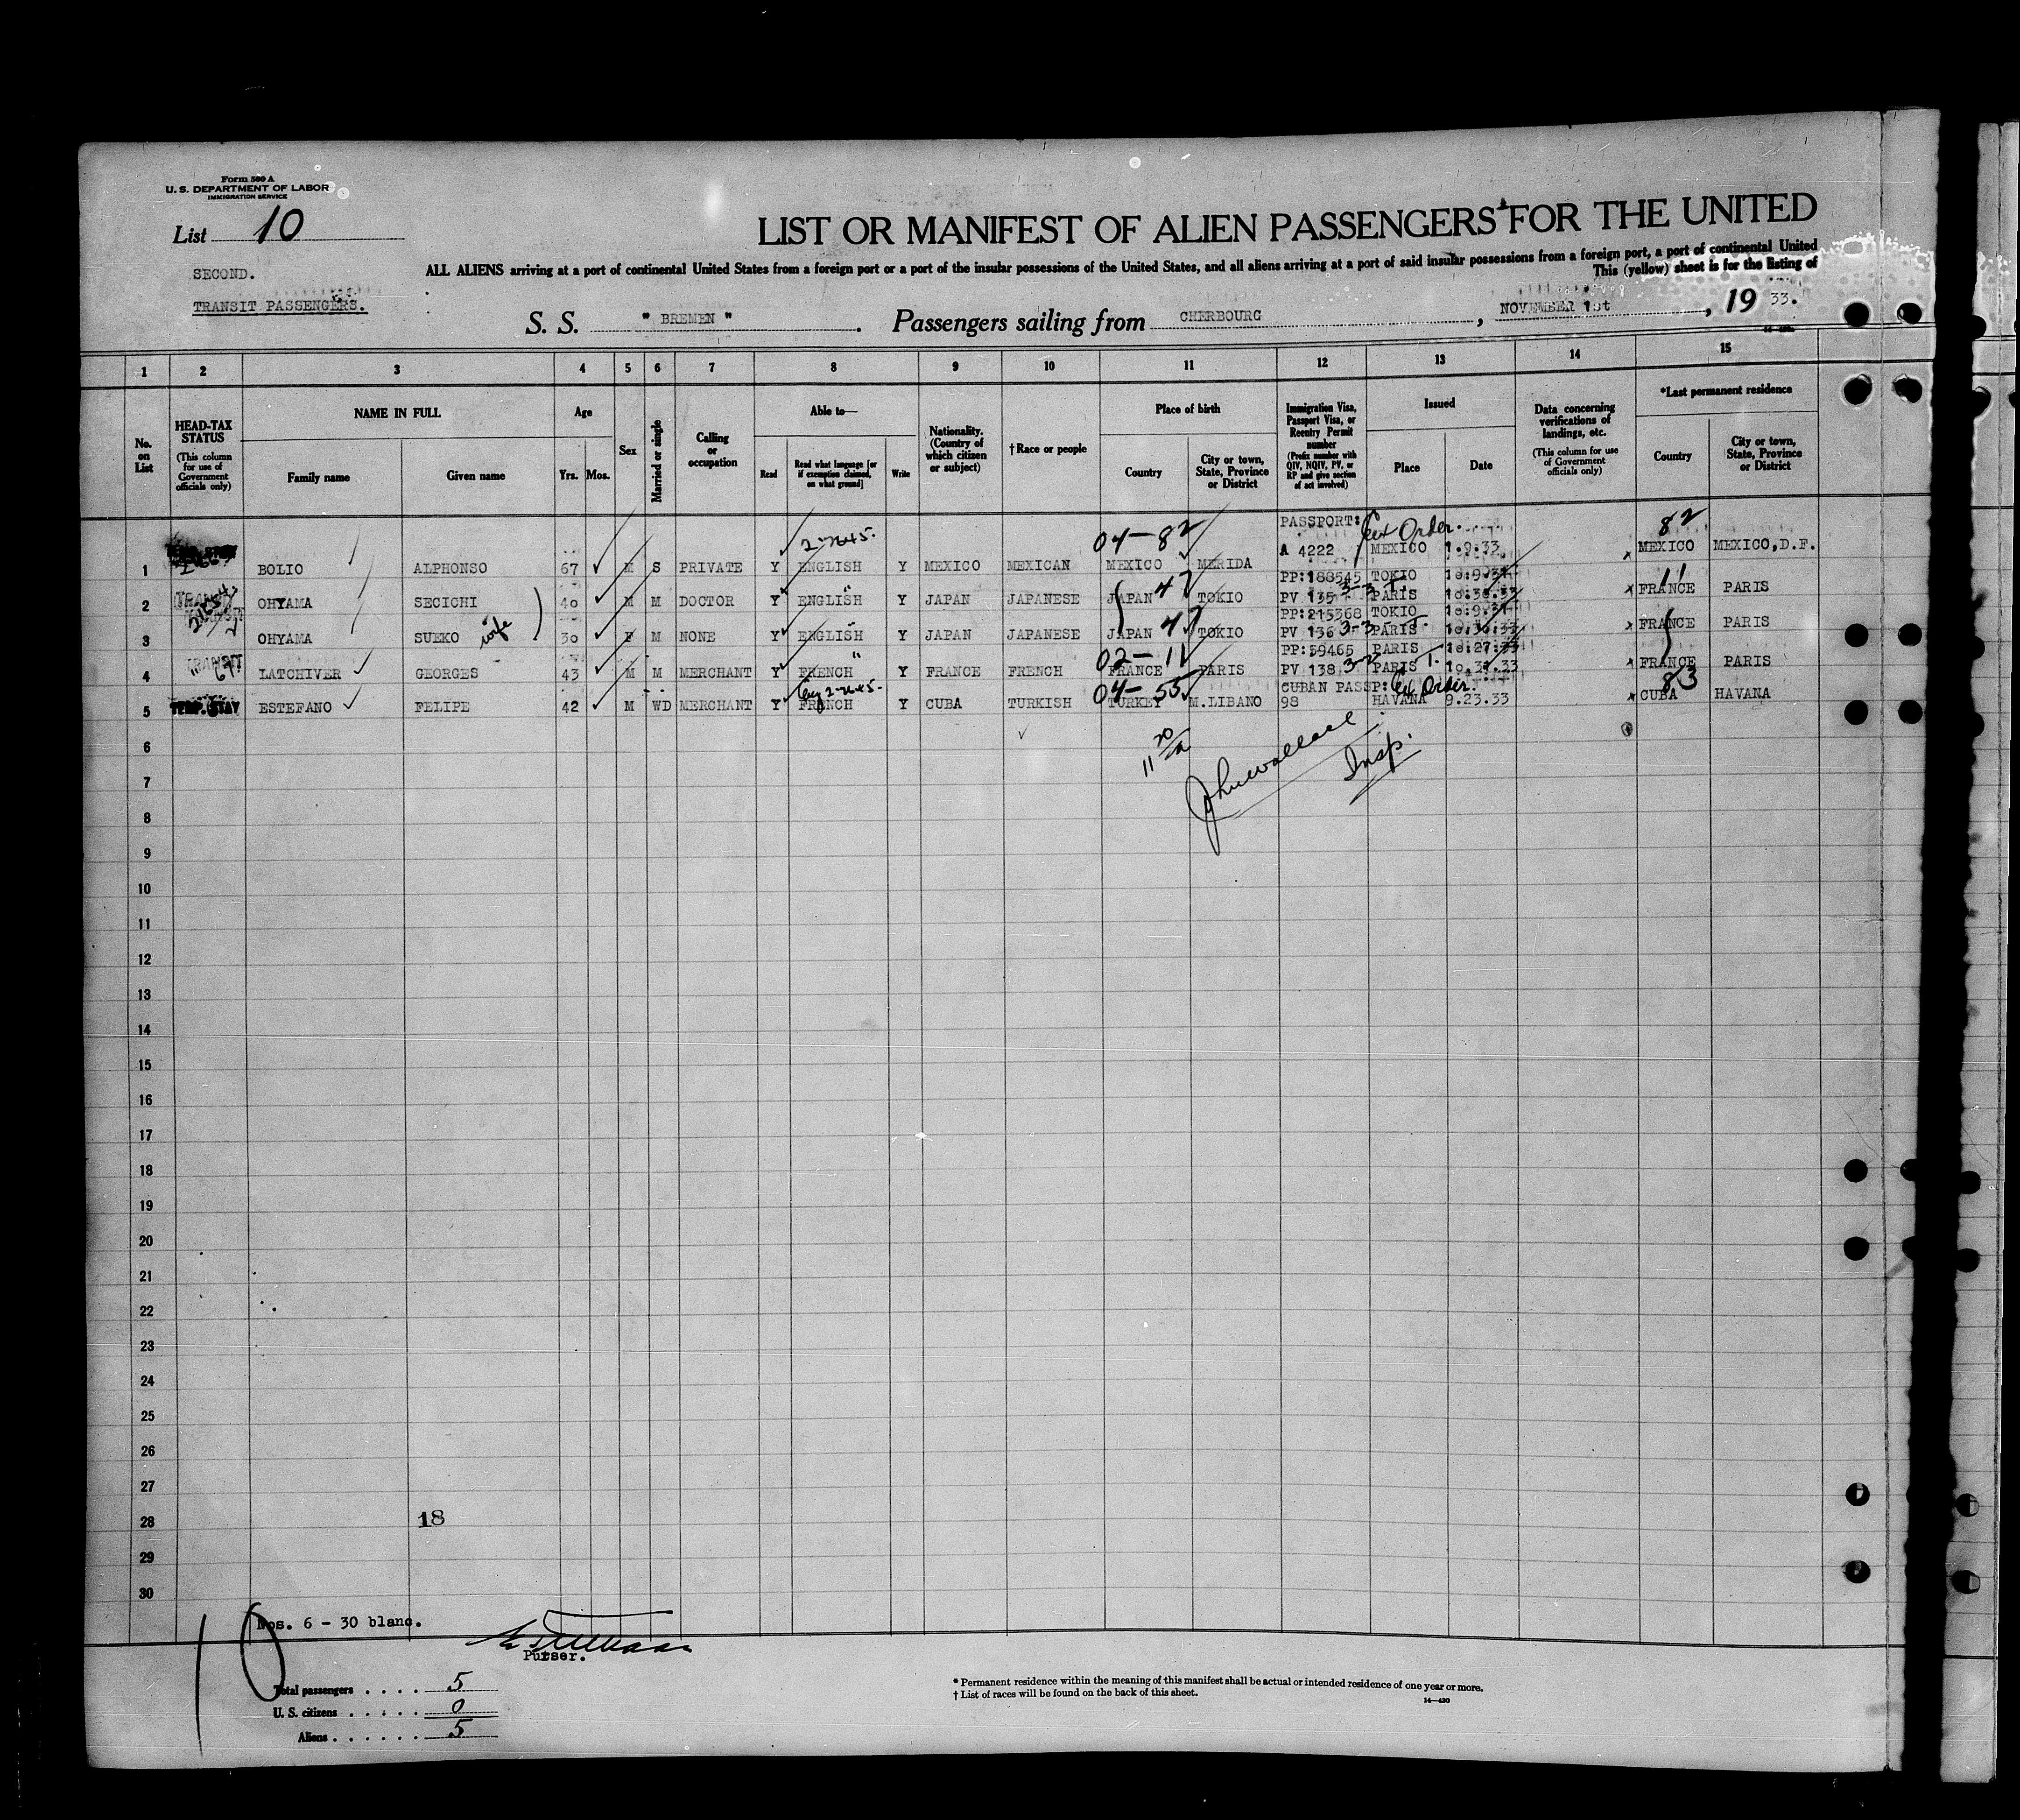 Form 500 A
U. S. DEPARTMENT OF LABOR
IMMIGRATION SERVICE
List 10
LIST OR MANIFEST OF ALIEN PASSENGERS FOR THE UNITED
SECOND.
ALL ALIENS arriving at a port of continental United States from a foreign port or a port of the insular possessions of the United States, and all aliens arriving at a port of said insular possessions from a foreign port, a port of continental United
This (yellow) sheet is for the listing of
TRANSIT PASSENGERS.
S. S. " BREMEN " . Passengers sailing from CHERBOURG , NOVEMBER 1st , 19 33.
1 2 3 4 5 6 7 8 9 10 11 12 13 14 15
No. on List
HEAD-TAX STATUS
(This column for use of Government officials only)
NAME IN FULL
Family name
Given name
Age
Yrs. Mos.
Sex
Married or single
Calling or occupation
Able to—
Read
Read what language [or if exemption claimed, on what ground]
Write
Nationality. (Country of which citizen or subject)
†Race or people
Place of birth
Country
City or town, State, Province or District
Immigration Visa, Passport Visa, or Reentry Permit number
(Prefix number with QIV, NQIV, PV, or RP and give section of act involved)
Issued
Place
Date
Data concerning verifications of landings, etc.
(This column for use of Government officials only)
*Last permanent residence
Country
City or town, State, Province or District
04-82 PASSPORT: Ex Order. 82
1 BOLIO ALPHONSO 67 M S PRIVATE Y ENGLISH Y MEXICO MEXICAN MEXICO MERIDA A 4222 MEXICO 1.9.33 x MEXICO MEXICO,D.F.
PP:188545 TOKIO 11
2 TRANSIT OHYAMA SECICHI 40 M M DOCTOR Y ENGLISH Y JAPAN JAPANESE JAPAN 47 TOKIO PV 135 3-3 T. PARIS 10.30.33 x FRANCE PARIS
PP:215368 TOKIO
3 OHYAMA SUEKO wife 30 F M NONE Y ENGLISH Y JAPAN JAPANESE JAPAN 47 TOKIO PV 136 3-3 T. PARIS 10.30.33 x FRANCE PARIS
02-11 PP:59465 PARIS 10.27.33
4 TRANSIT LATCHIVER GEORGES 43 M M MERCHANT Y FRENCH Y FRANCE FRENCH FRANCE PARIS PV 138 3-2 PARIS T. 10.31.33 x FRANCE PARIS
04-55 CUBAN PASSP: Ex Order. 83
5 TEMP. STAY ESTEFANO FELIPE 42 M WD MERCHANT Y FRENCH Y CUBA TURKISH TURKEY M.LIBANO 98 HAVANA 9.23.33 x CUBA HAVANA
6
7
John Wallace
Insp.
8
9
10
11
12
13
14
15
16
17
18
19
20
21
22
23
24
25
26
27
28 18
29
30
Nos. 6 - 30 blanc.
10
Purser.
Total passengers . . . . 5
U. S. citizens . . . . . . 0
Aliens . . . . . . 5
* Permanent residence within the meaning of this manifest shall be actual or intended residence of one year or more.
† List of races will be found on the back of this sheet.
14—430